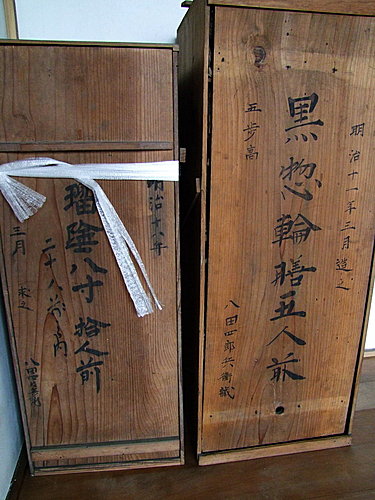 明治十一年三月造之
黒惣輪膳五人前
五歩高
八田四郎兵衛
明治十年
八寸 拾人前
二十八前ノ内
三月 求之
八田